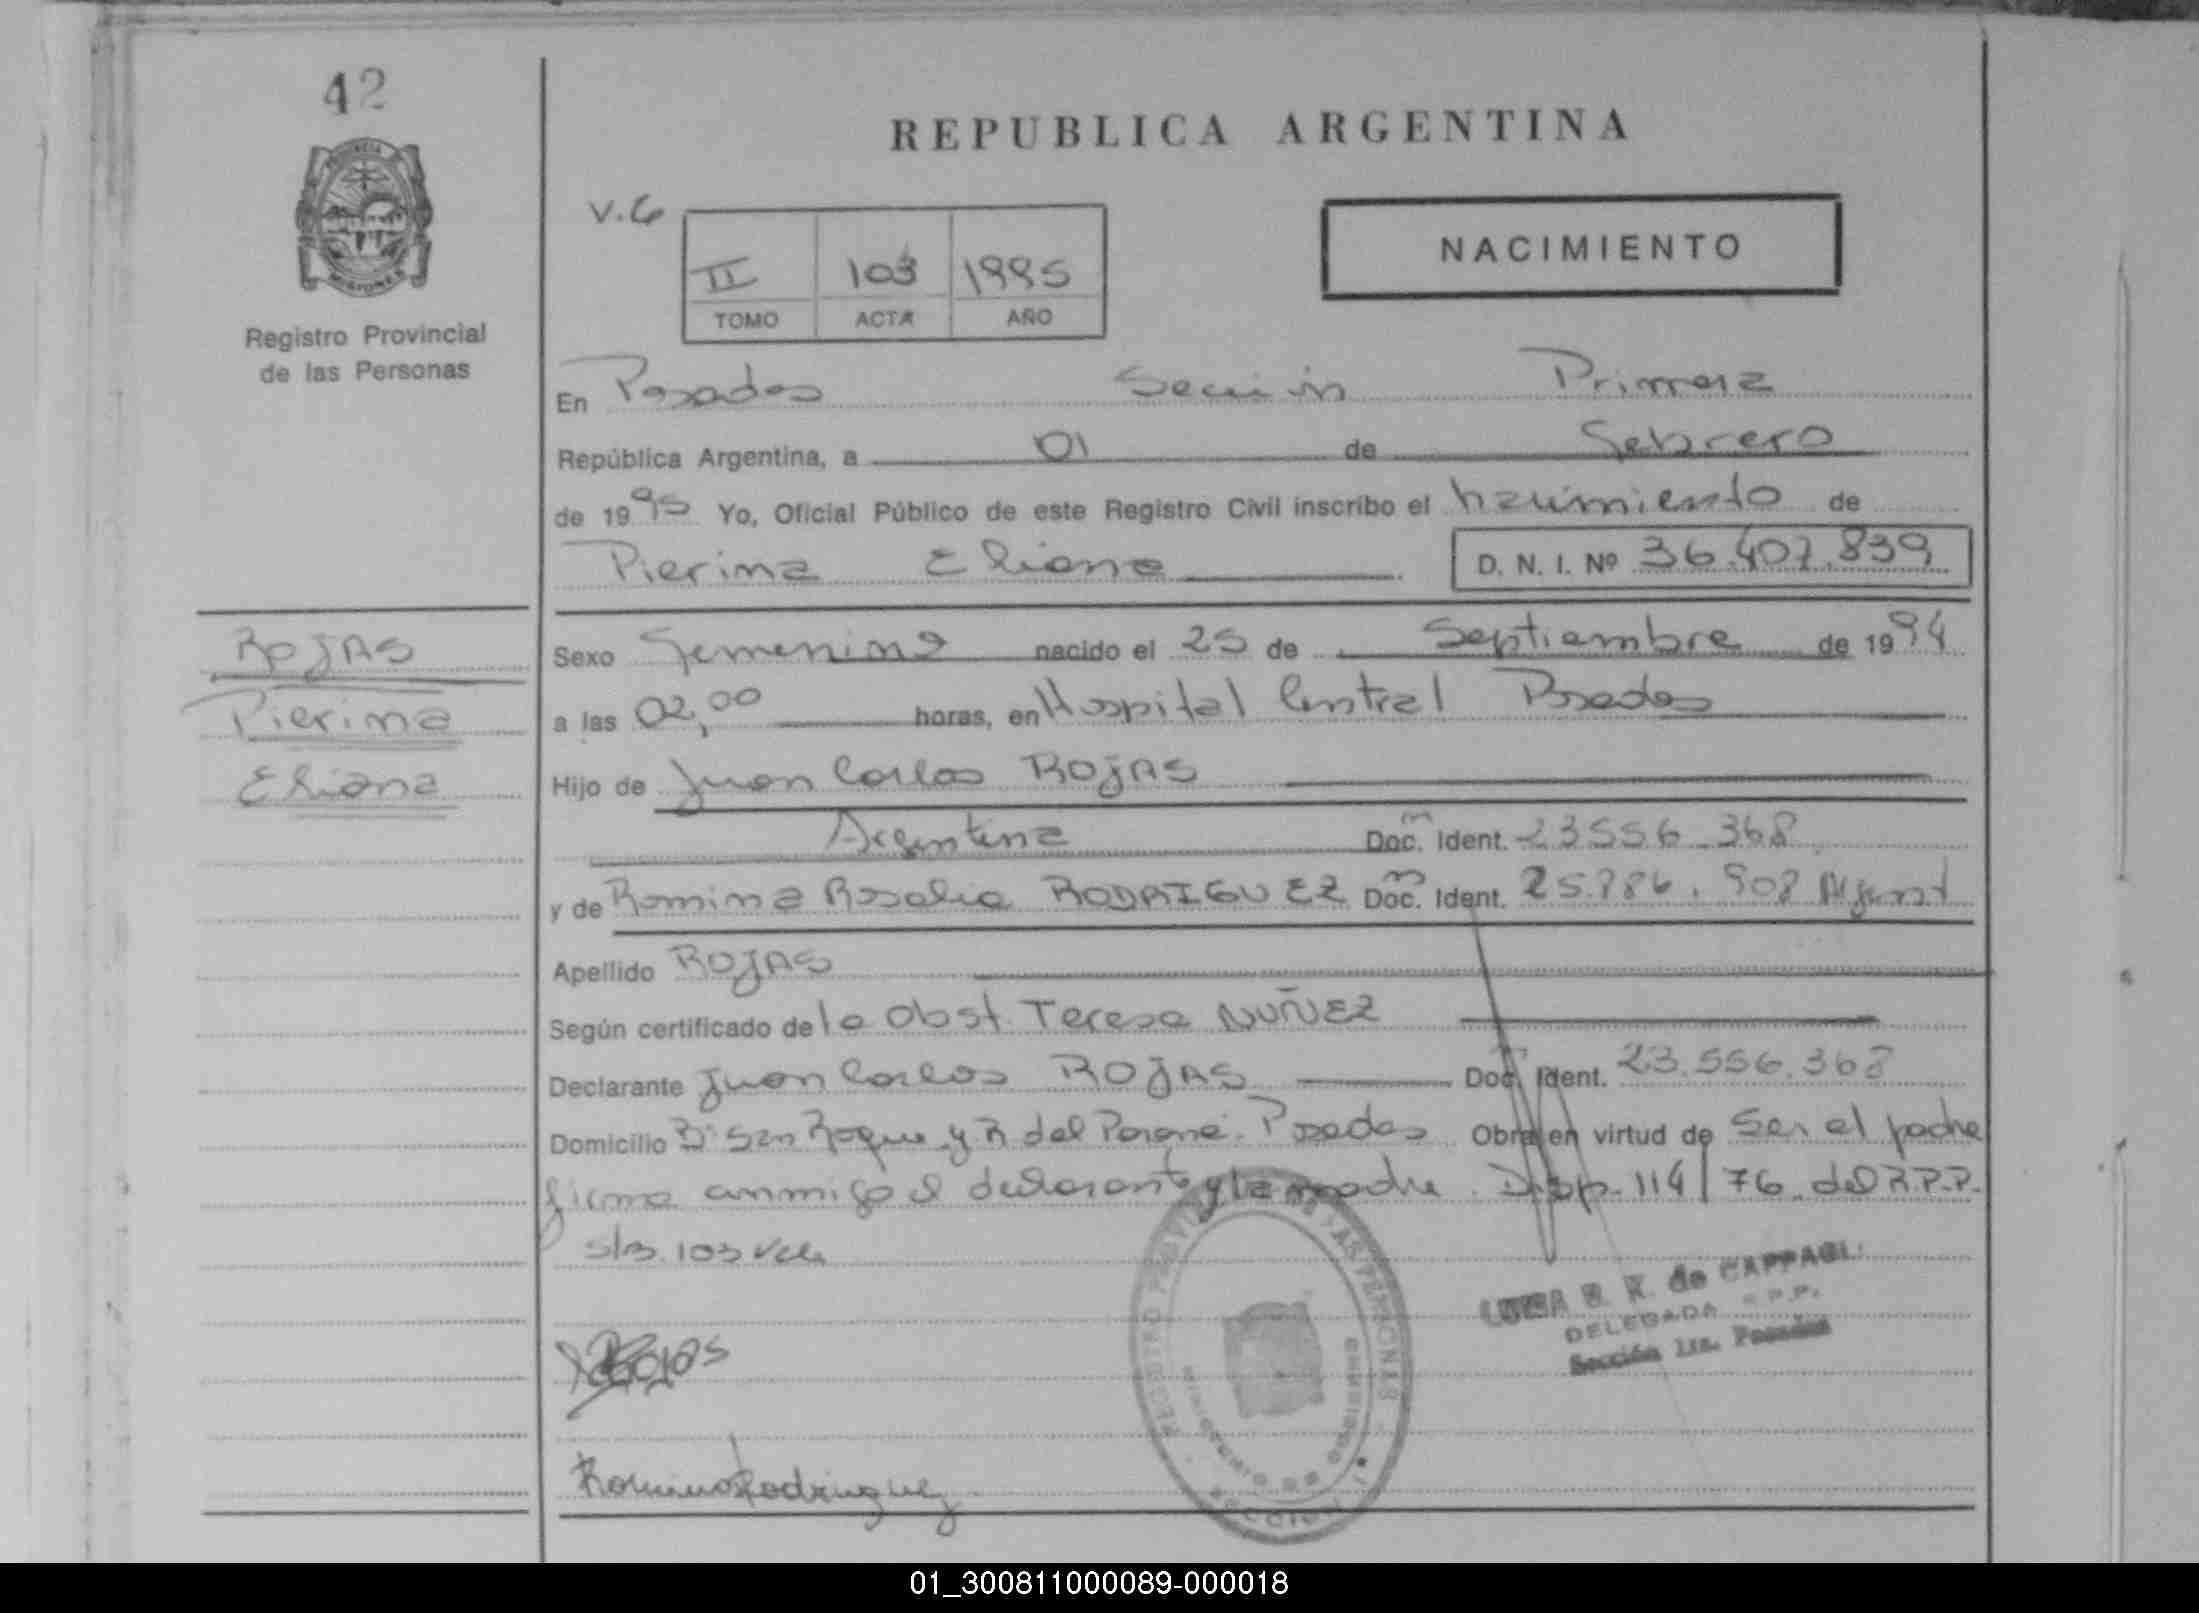 42
PROVINCIA
MISIONES
Registro Provincial
de las Personas
REPUBLICA ARGENTINA
V.6
II 103 1995
TOMO ACTA AÑO
NACIMIENTO
En Posadas Sección Primera
República Argentina, a 01 de Febrero
de 1995 Yo, Oficial Público de este Registro Civil inscribo el nacimiento de
Pierina Eliana D. N. I. Nº 36.407.839
ROJAS
Pierina
Eliana
Sexo Femenino nacido el 25 de Septiembre de 1994
a las 02,00 horas, en Hospital Central Posadas
Hijo de Juan Carlos ROJAS
Argentina Doc. Ident. 23556.368
y de Romina Rosalia RODRIGUEZ Doc. Ident. 25.786.908 Argent
Apellido ROJAS
Según certificado de la Obst. Teresa NUÑEZ
Declarante Juan Carlos ROJAS Doc. Ident. 23.556.368
Domicilio Bº San Roque y R del Parana. Posadas Obra en virtud de ser el padre
firma conmigo el declarante y la madre. Disp. 114/76 del R.P.P.
S/B. 103 Vale
Rojas
Romina Rodriguez
REGISTRO PROVINCIAL DE LAS PERSONAS
MINISTERIO DE GOBIERNO
MISIONES
de CAPPAGLI
DELEGADA R.P.P.
Sección 1ra. Posadas
01_300811000089-000018